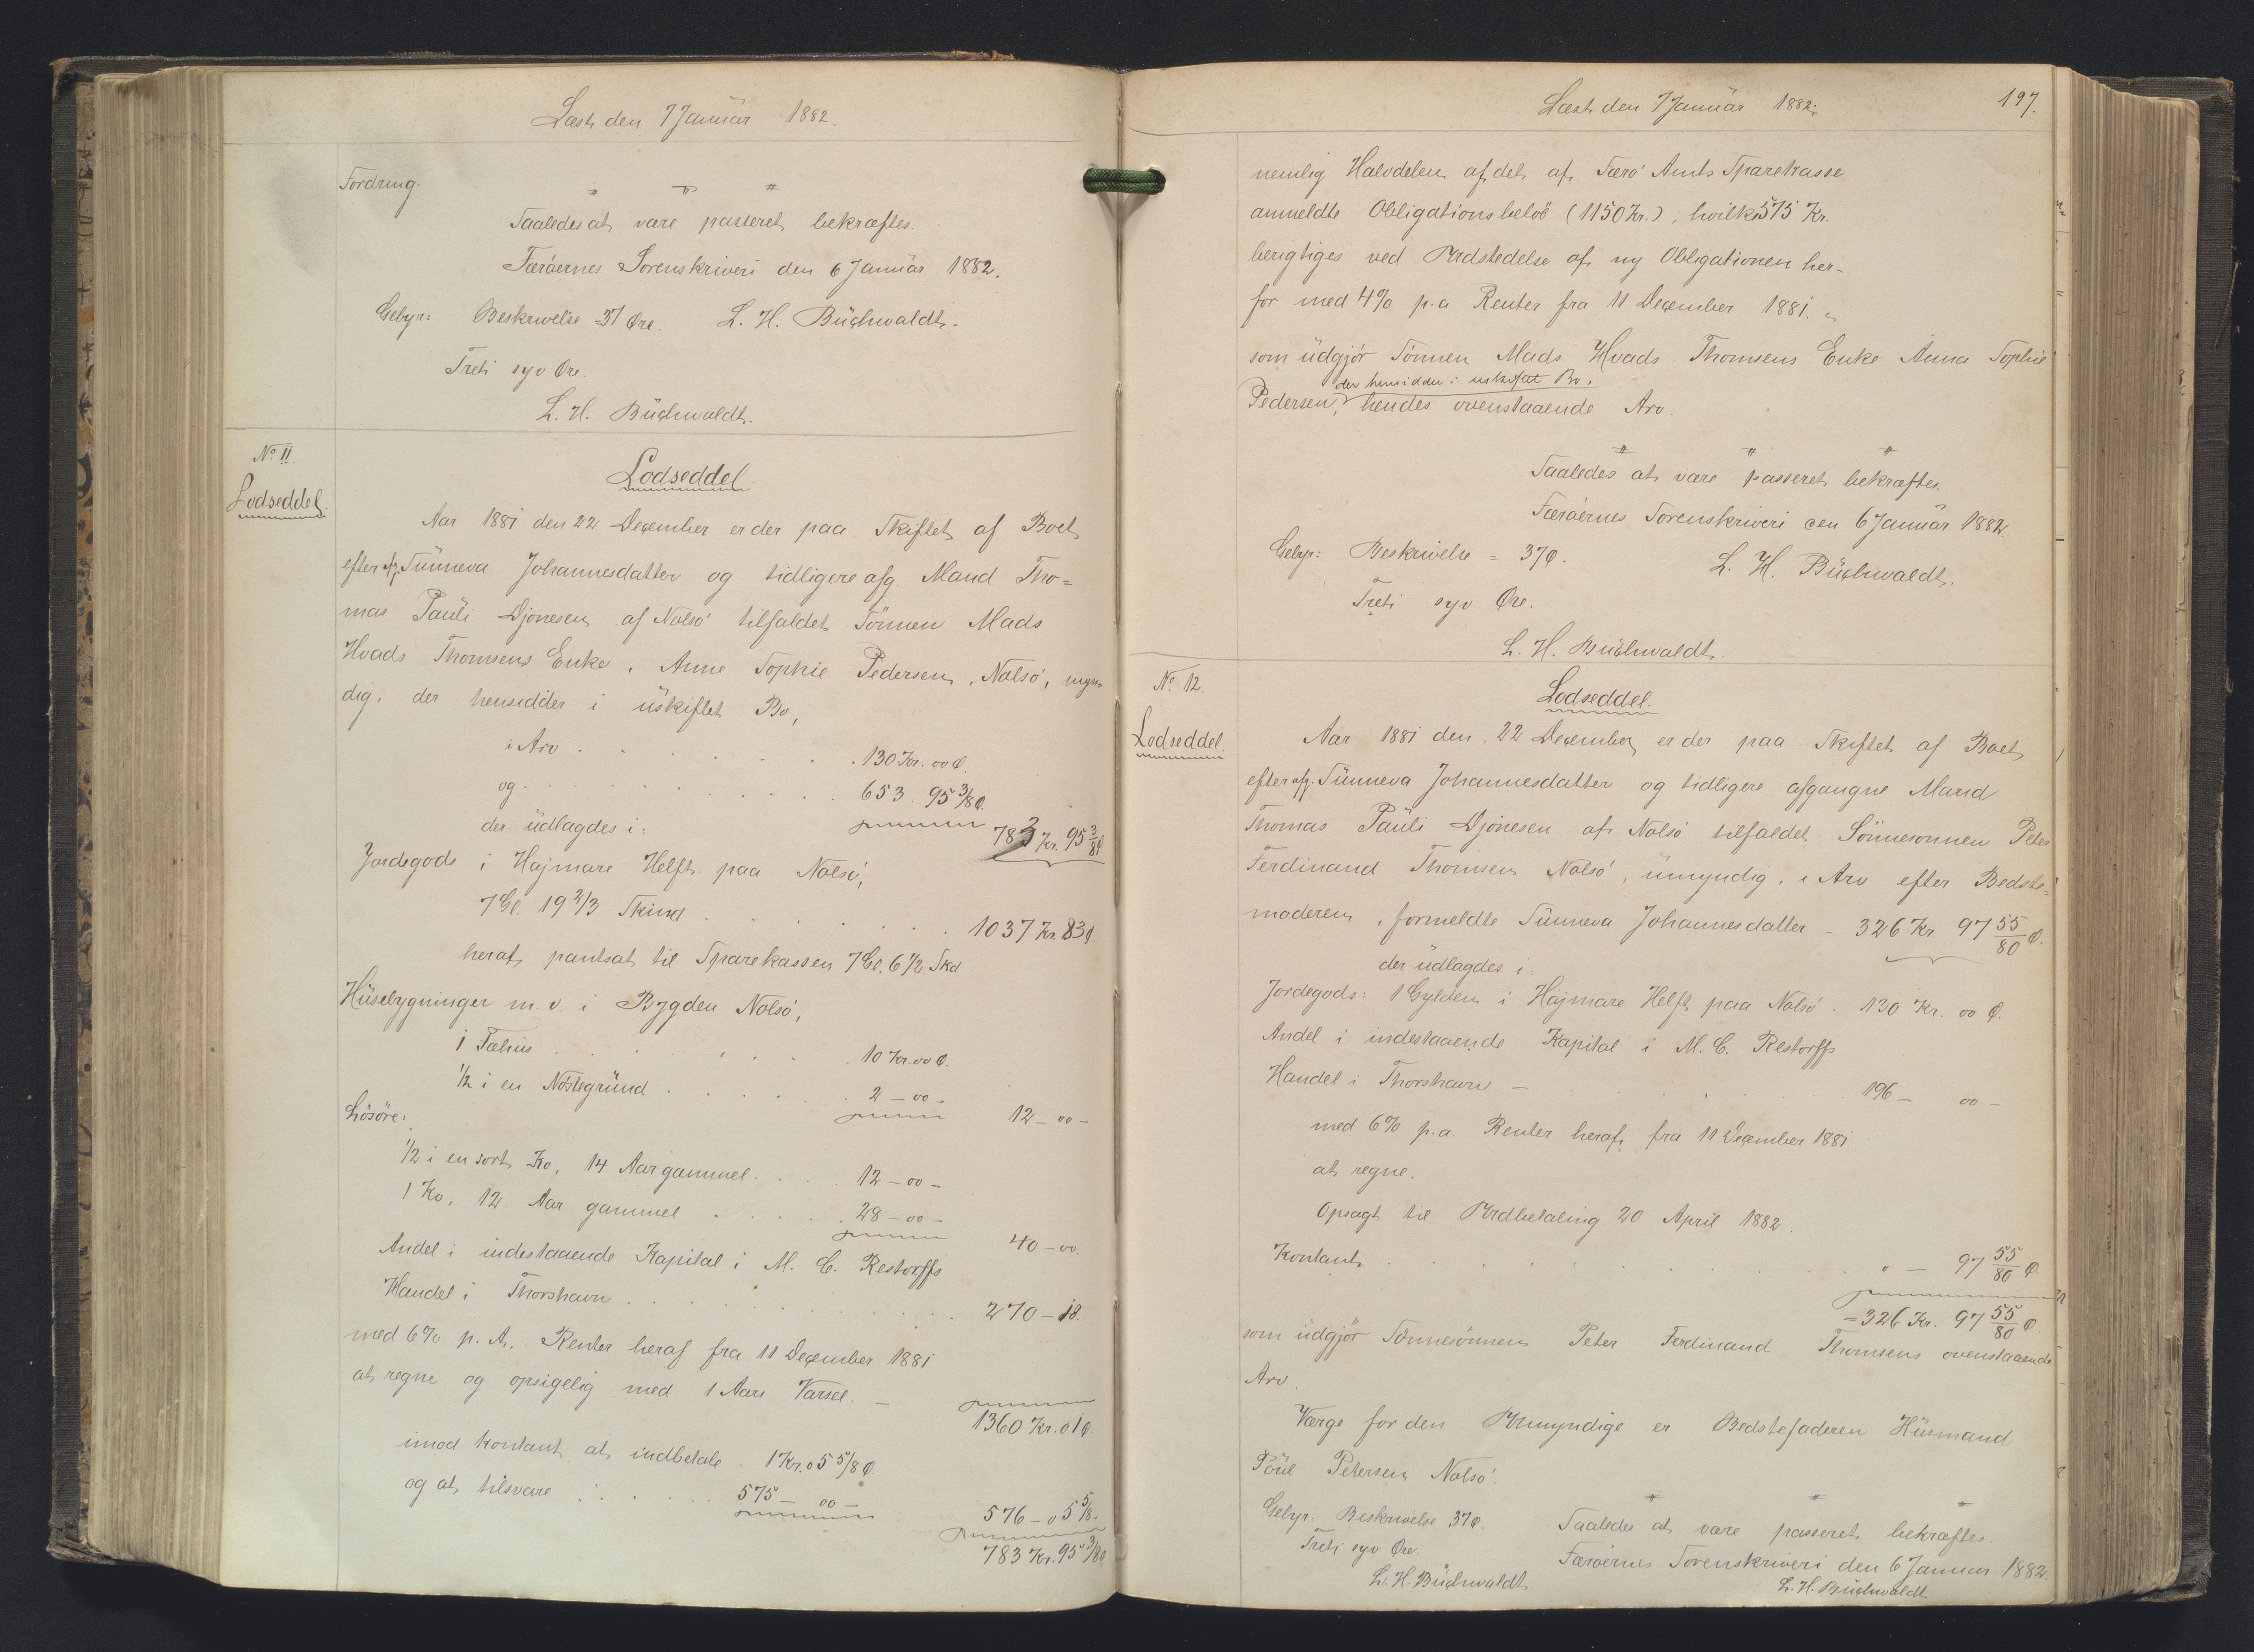 Læst den 7 Januar 1882.
Fordring.
" " "
Saaledes at være passeret bekræftes.
Færøernes Sorenskriveri den 6 Januar 1882.
Gebyr: Beskrivelse = 37 Øre. L. H. Buchwaldt.
Treti syv Øre.
L. H. Buchwaldt.
No 11.
Lodseddel.
Lodseddel
Aar 1881 den 22 December er der paa Skiftet af Boet
efter afg. Sunneva Johannesdatter og tidligere afg. Mand Tho=
mas Pauli Djonesen af Nolsø tilfaldet Sønnen Mads
Hvads Thomsens Enke, Anne Sophie Pedersen, Nolsø, myn=
dig, der hensidder i uskiftet Bo,
i Arv . . . . . 130 Kr. 00 Ø.
og . . . . . 653. 95 3/8 Ø.
der udlagdes i: 783 Kr. 95 3/8 Ø
Jordegods i Høgmare Helft paa Nolsø,
7 Gl. 19 2/3 Skind . . . . . 1037 Kr. 83 Ø.
heraf pantsat til Sparekassen 7 Gl. 6 1/2 Skd
Husebygninger m. v. i Bygden Nolsø,
1 Fæhus . . . . . 10 Kr. 00 Ø.
1/2 i en Nøstegrund . . . . . 2 - 00 -
12 - 00 -
Løsøre:
1/2 i en sort Ko, 14 Aar gammel . . . . 12 - 00 -
1 Ko, 12 Aar gammel . . . . . 28 - 00 -
40 - 00.
Andel i indestaaende Kapital i M. C. Restorffs
Handel i Thorshavn . . . . . 270 - 18.
med 6% p. A. Renter heraf fra 11 December 1881
at regne og opsigelig med 1 Aars Varsel. -
1360 Kr. 01 Ø.
imod kontant at indbetale . 1 Kr. 05 5/8 Ø
og at tilsvare . . . . . 575 - 00 -
576 - 05 5/8.
783 Kr. 95 3/8 Ø.
Læst den 7 Januar 1882.
197.
nemlig Halvdelen af det af Færø Amts Sparekasse
anmeldte Obligationsbeløb (1150 Kr.), hvilke 575 Kr.
berigtiges ved Udstedelse af ny Obligationen her-
for med 4% p. a Renter fra 11 December 1881.
som udgjør Sønnen Mads Hvads Thomsens Enke Anna Sophie
der hensidder i uskiftet Bo.
Pedersen, hendes ovenstaaende Arv.
" " "
Saaledes at være passeret bekræftes.
Færøernes Sorenskriveri den 6 Januar 1882.
Gebyr: Beskrivelse = 37 Ø. L. H. Buchwaldt.
Treti syv Øre.
L. H. Buchwaldt.
No 12.
Lodseddel.
Lodseddel.
Aar 1881 den 22 December er der paa Skiftet af Boet
efter afg. Sunneva Johannesdatter og tidligere afgangne Mand
Thomas Pauli Djonesen af Nolsø tilfaldet Sønnesønnen Peter
Ferdinand Thomsen Nolsø, umyndig, i Arv efter Bedste=
moderen, formeldte Sunneva Johannesdatter - 326 Kr 97 55/80 Ø.
der udlagdes i.
Jordegods: 1 Gylden i Høgmare Helft paa Nolsø . 130 Kr. 00 Ø.
Andel i indestaaende Kapital i M. C. Restorffs
Handel i Thorshavn - . . . 196 - 00 -
med 6% p. a. Renter heraf fra 11 December 1881
at regne.
Opsagt til Udbetaling 20 April 1882.
Kontant . . . . . " - 97 55/80 Ø
= 326 Kr. 97 55/80 Ø
som udgjør Sønnesønnen Peter Ferdinand Thomsens ovenstaaende
Arv.
Værge for den Umyndige er Bedstefaderen Husmand
Poul Petersen Nolsø.
" " "
Gebyr. Beskrivelse 37 Ø. Saaledes at være passeret bekræftes.
Treti syv Øre. Færøernes Sorenskriveri den 6 Januar 1882.
L. H. Buchwaldt. L. H. Buchwaldt